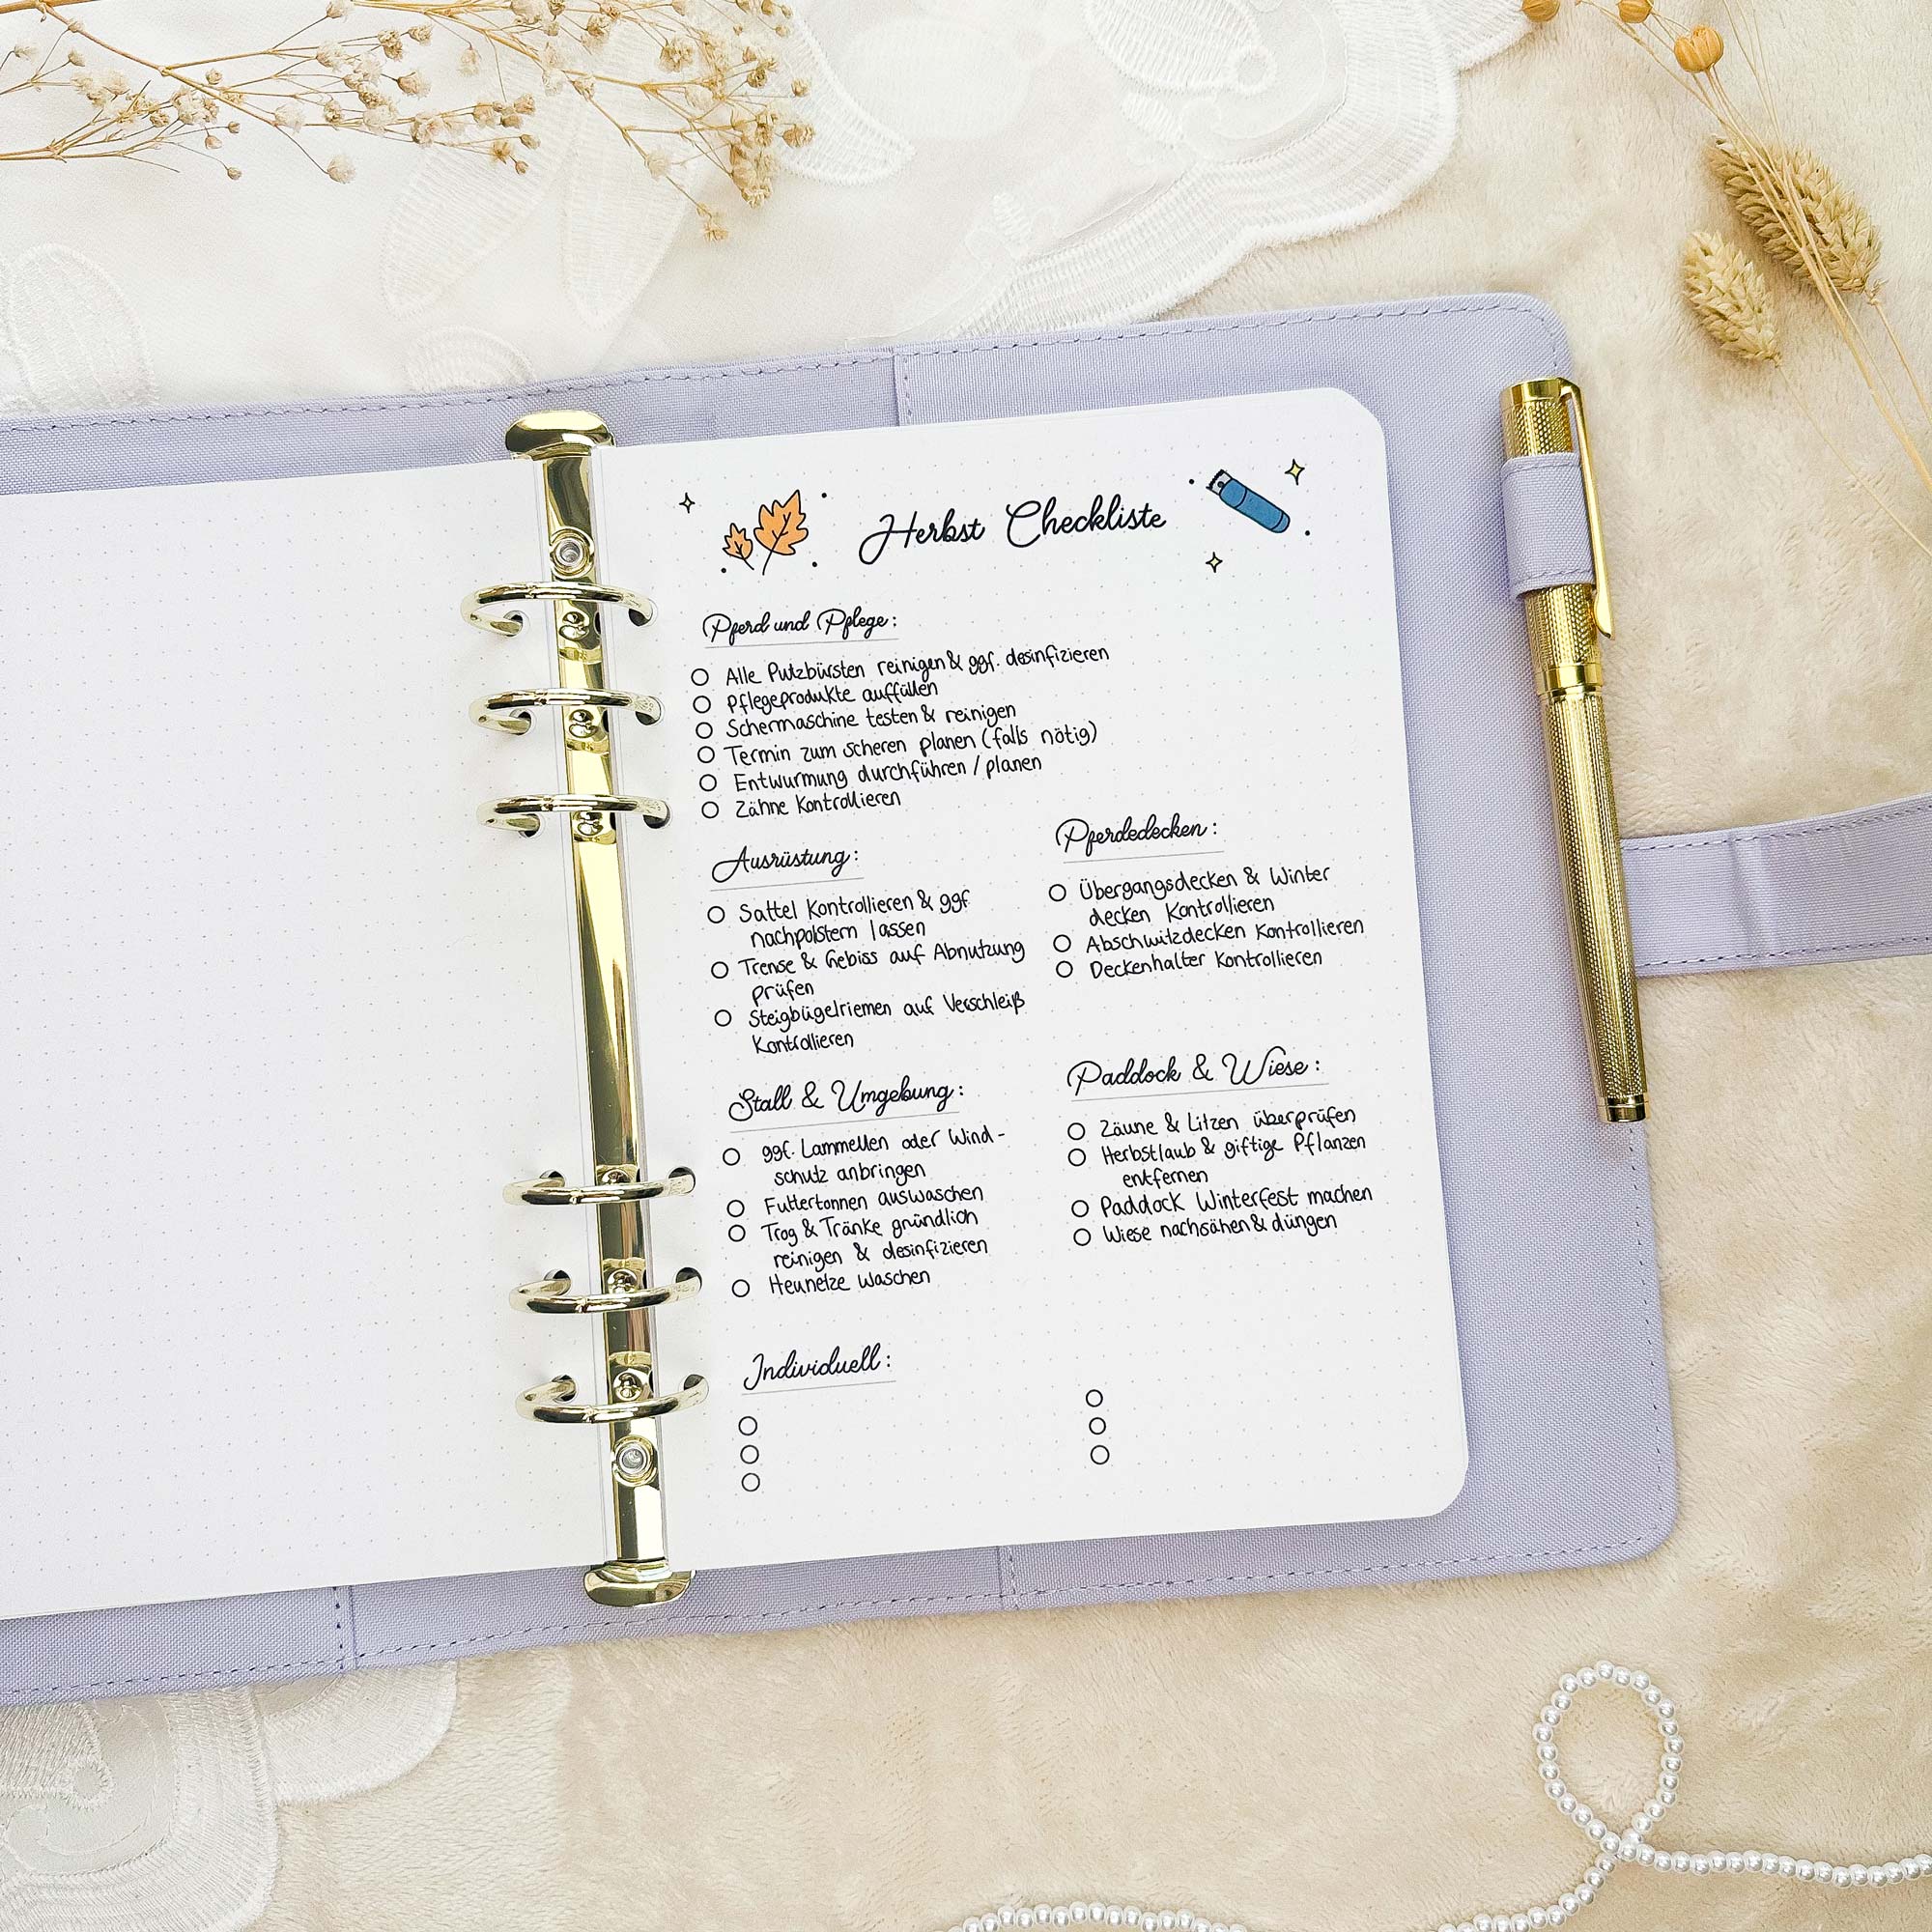 Herbst Checkliste
Pferd und Pflege:
Alle Putzbürsten reinigen & ggf. desinfizieren
Pflegeprodukte auffüllen
Schermaschine testen & reinigen
Termin zum scheren planen (falls nötig)
Entwurmung durchführen / planen
Zähne Kontrollieren
Ausrüstung:
Sattel Kontrollieren & ggf.
nachpolstern lassen
Trense & Gebiss auf Abnutzung
prüfen
Steigbügelriemen auf Verschleiß
Kontrollieren
Pferdedecken:
Übergangsdecken & Winter
decken Kontrollieren
Abschwitzdecken Kontrollieren
Deckenhalter Kontrollieren
Stall & Umgebung:
ggf. Lammellen oder Wind-
schutz anbringen
Futtertonnen auswaschen
Trog & Tränke gründlich
reinigen & desinfizieren
Heunetze waschen
Paddock & Wiese:
Zäune & Litzen überprüfen
Herbstlaub & giftige Pflanzen
entfernen
Paddock Winterfest machen
Wiese nachsähen & düngen
Individuell: